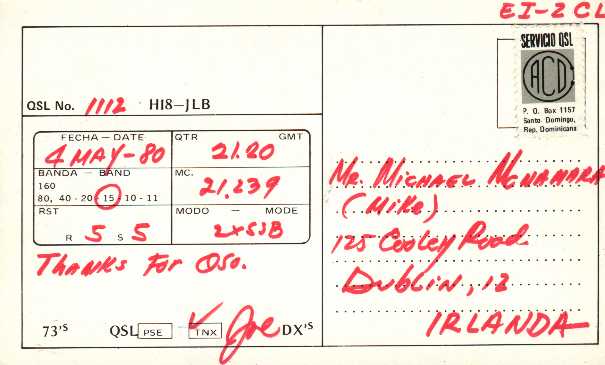 EI-2CL
SERVICIO QSL
RCDC
P. O. Box 1157
Santo Domingo,
Rep. Dominicana
QSL No. 1112 HI8-JLB
FECHA - DATE
4 MAY-80
QTR GMT
21.20
BANDA - BAND
160
80, 40 - 20 - 15 - 10 - 11
MC.
21.239
RST
R 5 S 5
MODO - MODE
2xSSB
THANKS FOR QSO.
73'S QSL PSE TNX Joe DX'S
Mr. MICHAEL McNAMARA
(MIKE)
125 Cooley Road.
DUBLIN, 12
IRLANDA